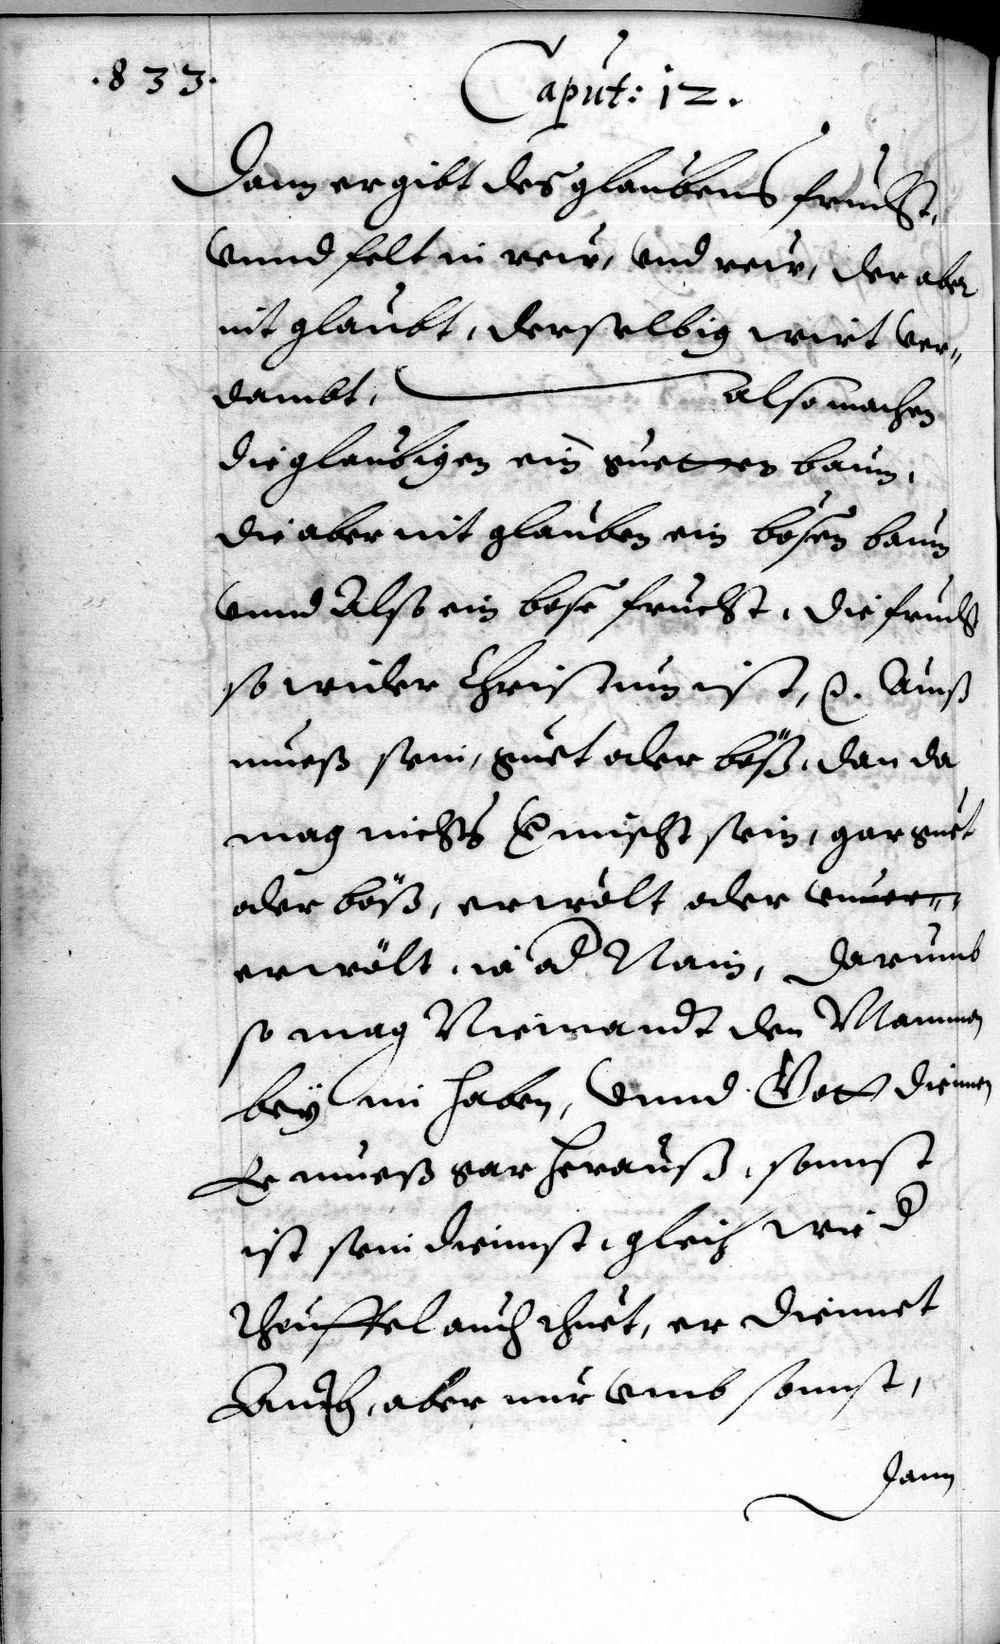 .833.
Caput: 12.
Dann er gibt des glaubens frucht,
vnnd felt in reiw, vnd reiw, der aber
nit glaubt, derselbig wirt ver„
dambt, also machen
die glaubigen ein guetten baum,
die aber nit glauben ein bösen baum
vnnd Also ein böse frucht, die frucht
so wider Christum ist, Ainß
mueß sein, guet oder böß, dan da
mag nichts vermischt sein, gar guet
oder böß, erwölt oder vnuer„
erwölt, ia od Nain, Darumb
so mag Niemandt den Mammon
bey im haben, vnnd Gott diennen
Er mueß gar herauß, sonnst
ist sein diennst, gleich wie d
Theuffel auch thuet, er diennet
Auch, aber nur vmb sonnst,
Dann